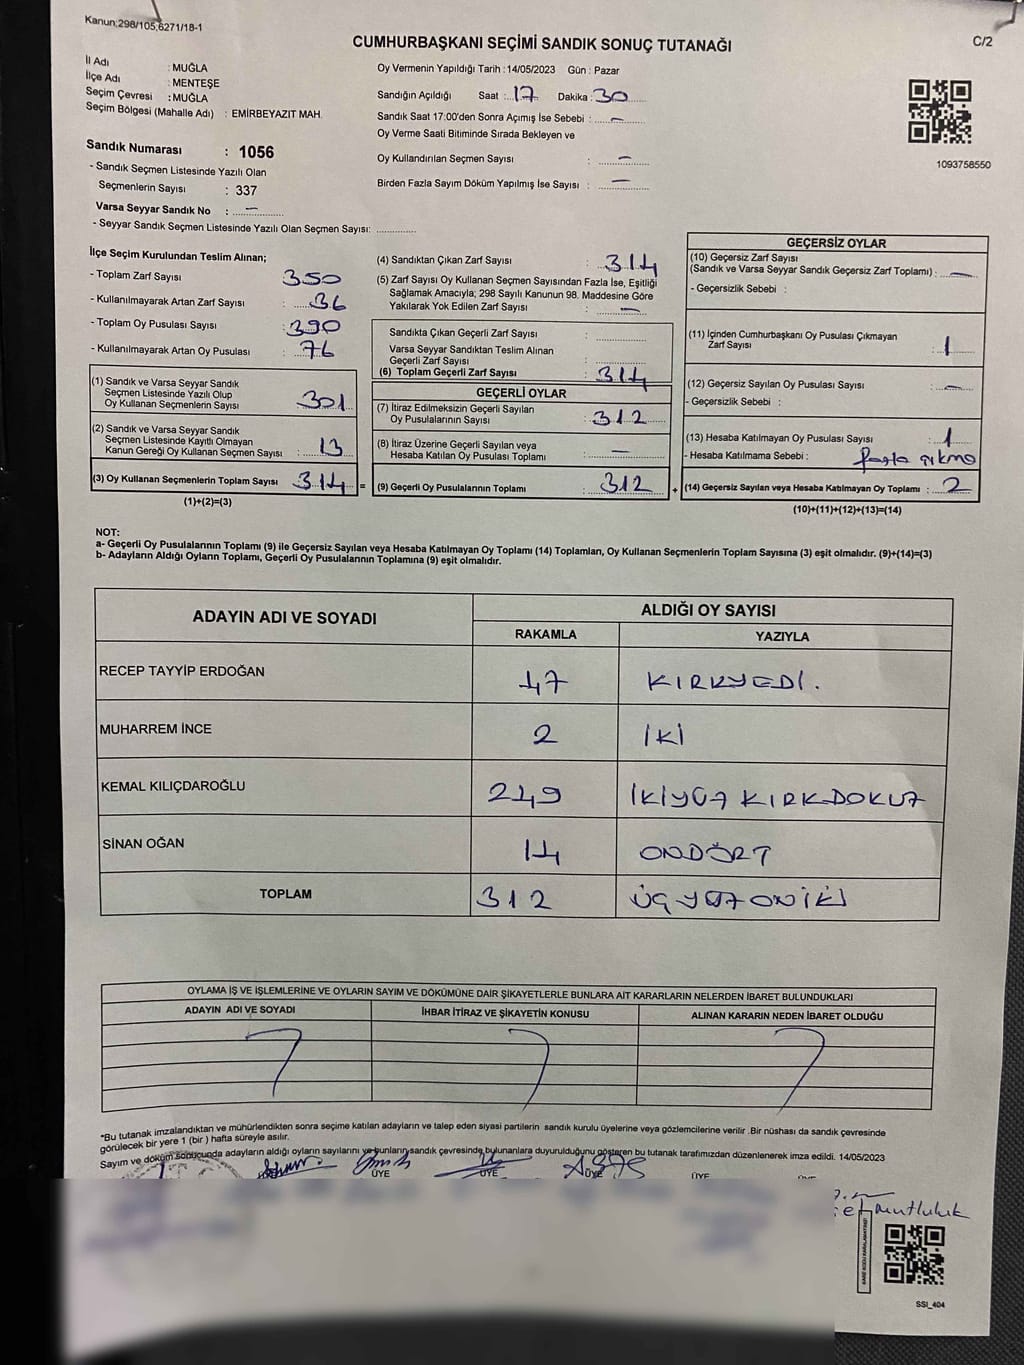 Kanun:298/105,6271/18-1
CUMHURBAŞKANI SEÇİMİ SANDIK SONUÇ TUTANAĞI
C/2
İl Adı : MUĞLA
İlçe Adı : MENTEŞE
Seçim Çevresi : MUĞLA
Seçim Bölgesi (Mahalle Adı) : EMİRBEYAZIT MAH.
Sandık Numarası : 1056
- Sandık Seçmen Listesinde Yazılı Olan
Seçmenlerin Sayısı : 337
Varsa Seyyar Sandık No : –
- Seyyar Sandık Seçmen Listesinde Yazılı Olan Seçmen Sayısı: ..............
Oy Vermenin Yapıldığı Tarih : 14/05/2023 Gün : Pazar
Sandığın Açıldığı Saat : 17 Dakika : 30
Sandık Saat 17:00'den Sonra Açımış İse Sebebi : –
Oy Verme Saati Bitiminde Sırada Bekleyen ve
Oy Kullandırılan Seçmen Sayısı : –
Birden Fazla Sayım Döküm Yapılmış İse Sayısı : –
1093758550
İlçe Seçim Kurulundan Teslim Alınan;
- Toplam Zarf Sayısı : 350
- Kullanılmayarak Artan Zarf Sayısı : 36
- Toplam Oy Pusulası Sayısı : 390
- Kullanılmayarak Artan Oy Pusulası : 76
(1) Sandık ve Varsa Seyyar Sandık
Seçmen Listesinde Yazılı Olup
Oy Kullanan Seçmenlerin Sayısı : 301
(2) Sandık ve Varsa Seyyar Sandık
Seçmen Listesinde Kayıtlı Olmayan
Kanun Gereği Oy Kullanan Seçmen Sayısı : 13
(3) Oy Kullanan Seçmenlerin Toplam Sayısı : 314 =
(1)+(2)=(3)
(4) Sandıktan Çıkan Zarf Sayısı : 314
(5) Zarf Sayısı Oy Kullanan Seçmen Sayısından Fazla İse, Eşitliği
Sağlamak Amacıyla; 298 Sayılı Kanunun 98. Maddesine Göre
Yakılarak Yok Edilen Zarf Sayısı : –
Sandıkta Çıkan Geçerli Zarf Sayısı :
Varsa Seyyar Sandıktan Teslim Alınan
Geçerli Zarf Sayısı :
(6) Toplam Geçerli Zarf Sayısı : 314
GEÇERLİ OYLAR
(7) İtiraz Edilmeksizin Geçerli Sayılan
Oy Pusulalarının Sayısı : 312
(8) İtiraz Üzerine Geçerli Sayılan veya
Hesaba Katılan Oy Pusulası Toplamı : –
(9) Geçerli Oy Pusulalarının Toplamı : 312 +
GEÇERSİZ OYLAR
(10) Geçersiz Zarf Sayısı
(Sandık ve Varsa Seyyar Sandık Geçersiz Zarf Toplamı) : –
- Geçersizlik Sebebi :
(11) İçinden Cumhurbaşkanı Oy Pusulası Çıkmayan
Zarf Sayısı : 1
(12) Geçersiz Sayılan Oy Pusulası Sayısı : –
- Geçersizlik Sebebi :
(13) Hesaba Katılmayan Oy Pusulası Sayısı : 1
- Hesaba Katılmama Sebebi : fazla çıkma
(14) Geçersiz Sayılan veya Hesaba Katılmayan Oy Toplamı : 2
(10)+(11)+(12)+(13)=(14)
NOT:
a- Geçerli Oy Pusulalarının Toplamı (9) ile Geçersiz Sayılan veya Hesaba Katılmayan Oy Toplamı (14) Toplamları, Oy Kullanan Seçmenlerin Toplam Sayısına (3) eşit olmalıdır. (9)+(14)=(3)
b- Adayların Aldığı Oyların Toplamı, Geçerli Oy Pusulalarının Toplamına (9) eşit olmalıdır.
ADAYIN ADI VE SOYADI ALDIĞI OY SAYISI
RAKAMLA YAZIYLA
RECEP TAYYİP ERDOĞAN 47 KIRKYEDİ.
MUHARREM İNCE 2 İKİ
KEMAL KILIÇDAROĞLU 249 İKİYÜZ KIRKDOKUZ
SİNAN OĞAN 14 ONDÖRT
TOPLAM 312 ÜÇYÜZONİKİ
OYLAMA İŞ VE İŞLEMLERİNE VE OYLARIN SAYIM VE DÖKÜMÜNE DAİR ŞİKAYETLERLE BUNLARA AİT KARARLARIN NELERDEN İBARET BULUNDUKLARI
ADAYIN ADI VE SOYADI İHBAR İTİRAZ VE ŞİKAYETİN KONUSU ALINAN KARARIN NEDEN İBARET OLDUĞU
*Bu tutanak imzalandıktan ve mühürlendikten sonra seçime katılan adayların ve talep eden siyasi partilerin sandık kurulu üyelerine veya gözlemcilerine verilir .Bir nüshası da sandık çevresinde
görülecek bir yere 1 (bir ) hafta süreyle asılır.
Sayım ve döküm sonucunda adayların aldığı oyların sayılarını ve bunların sandık çevresinde bulunanlara duyurulduğunu gösteren bu tutanak tarafımızdan düzenlenerek imza edildi. 14/05/2023
ÜYE ÜYE ÜYE ÜYE
mutluluk
SSI_404